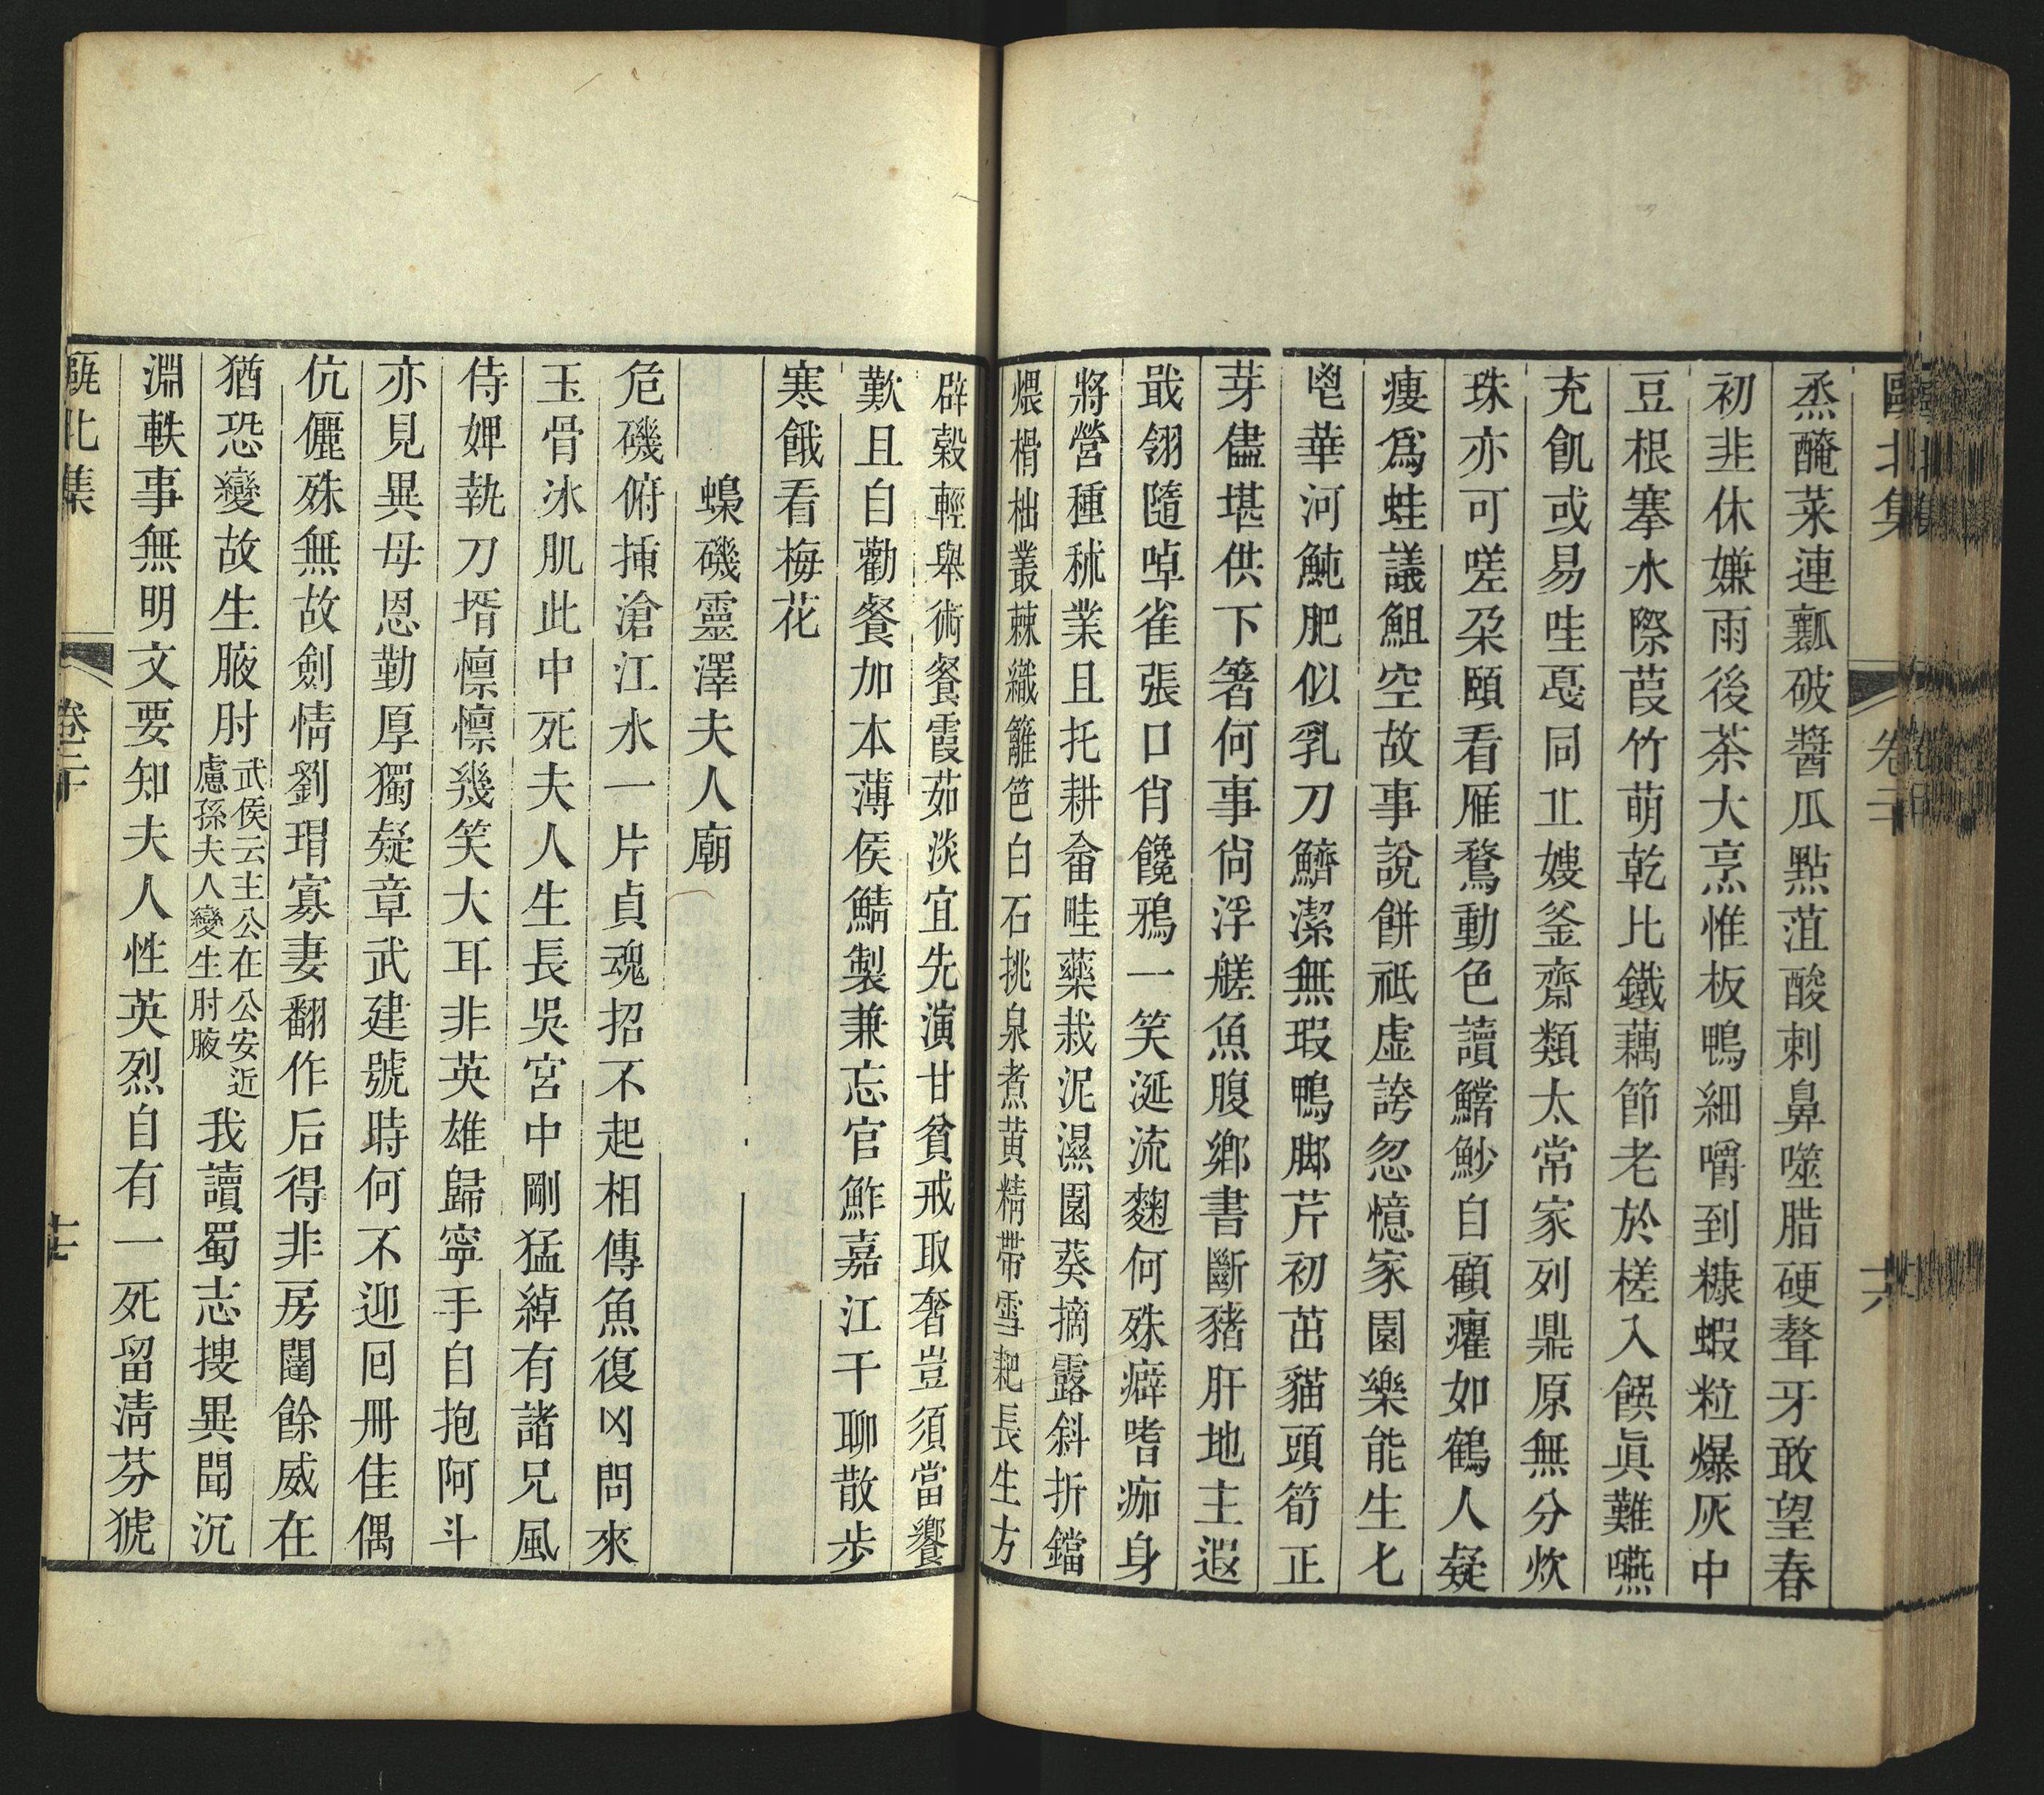 甌北集 卷二十 十六
烝醃菜連瓤破醬瓜點菹酸刺鼻噬腊硬聱牙敢望春
初韭休嫌雨後茶大烹惟板鴨細嚼到糠蝦粒爆灰中
豆根搴水際葭竹萌乾比鐵藕節老於槎入饌眞難嚥
充飢或易哇戞同丘嫂釜齋類太常家列鼎原無分炊
珠亦可嗟朶頤看雁鶩動色讀鱨魦自顧癯如鶴人疑
瘦爲蛙議鮔空故事說餅祇虛誇忽憶家園樂能生七
鬯華河魨肥似乳刀鱭潔無瑕鴨脚芹初茁貓頭筍正
芽儘堪供下箸何事尙浮艖魚腹鄉書斷豬肝地主遐
戢翎隨啅雀張口肖饞鴉一笑涎流麴何殊癖嗜痂身
將營種秫業且托耕畬畦藥栽泥濕園葵摘露斜折鐺
煨榾柮叢棘織籬笆白石挑泉煮黄精帶雪耙長生方
辟穀輕舉術餐霞茹淡宜先演甘貧戒取奢豈須當饗
歎且自勸餐加本薄侯鯖製兼忘官鮓嘉江干聊散步
寒餓看梅花
蟂磯靈澤夫人廟
危磯俯揷滄江水一片貞魂招不起相傳魚復凶問來
玉骨冰肌此中死夫人生長吳宮中剛猛綽有諸兄風
侍婢執刀壻懍懍幾笑大耳非英雄歸寧手自抱阿斗
亦見異母恩勤厚獨疑章武建號時何不迎囘冊佳偶
伉儷殊無故劍情劉瑁寡妻翻作后得非房闥餘威在
猶恐變故生腋肘武侯云主公在公安近慮孫夫人變生肘腋我讀蜀志搜異聞沉
淵軼事無明文要知夫人性英烈自有一死留淸芬猇
甌北集 卷二十 十七